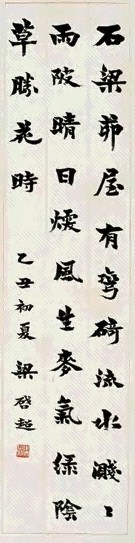 石梁茆屋有彎碕流水濺〻
雨陂晴日煖風生麥氣綠陰
草勝花時
乙丑初夏
梁啓超